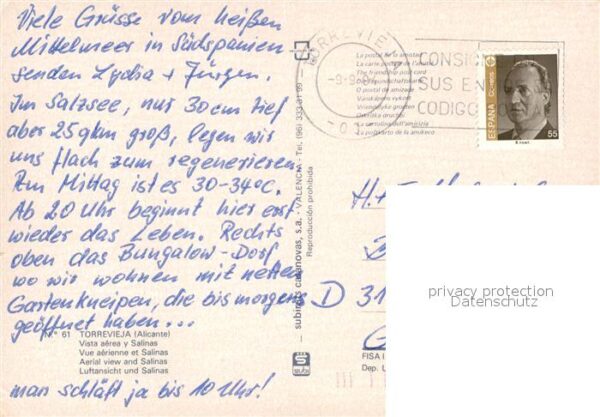 Viele Grüsse vom heißen
Mittelmeer in Südspanien
senden Lydia + Jürgen.
Im Salzsee, nur 30cm tief
aber 25 qkm groß, legen wir
uns flach zum regenerieren.
Am Mittag ist es 30-34°C.
Ab 20 Uhr beginnt hier erst
wieder das Leben. Rechts
oben das Bungalow-Dorf
wo wir wohnen mit netten
Gartenkneipen, die bis morgens
geöffnet haben...
N.° 61 TORREVIEJA (Alicante)
Vista aérea y Salinas
Vue aérienne et Salinas
Aerial view and Salinas
Luftansicht und Salinas
man schläft ja bis 10 Uhr!
subirats casanovas, s.a. - VALENCIA - Tel. (96)
Reproducción prohibida
subi
TORREVIEJA
-9.9
La postal de la amistad
La carte postale de l'amitié
The friendship post card
Die Freundschaftskarte
O postal de amizade
La cartolina dell'amicizia
CONSIG
SUS EN
CODIGO
ESPAÑA
CORREOS
55
D 31
FISA I
Dep. L
privacy protection
Datenschutz